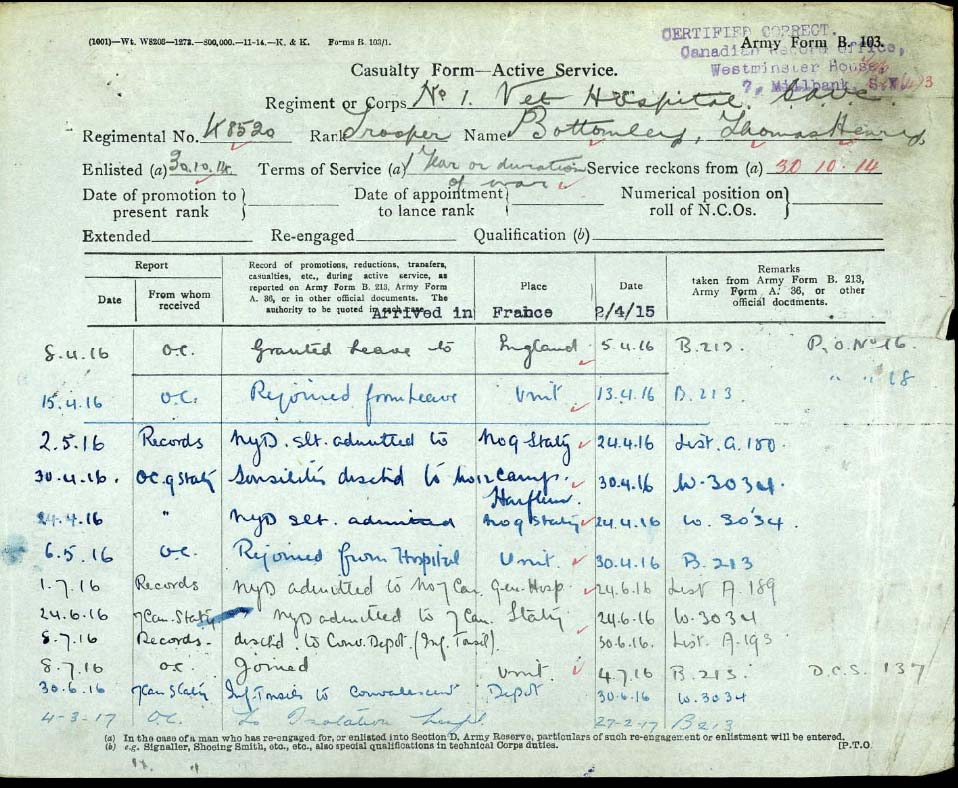 (1001)—Wt. W8203—1272.—800,000.—11-14.—K. & K. Forms B. 103/1.
CERTIFIED CORRECT.
Army Form B. 103.
Canadian Record Office,
Westminster House,
7, Millbank, S.W.
Casualty Form—Active Service.
Regiment or Corps No 1. Vet Hospital. C.A.V.C.
Regimental No. 48520 Rank Trooper Name Bottomley, Thomas Henry
Enlisted (a) 30.10.14. Terms of Service (a) 1 Year or duration of war Service reckons from (a) 30 10 14
Date of promotion to present rank Date of appointment to lance rank Numerical position on roll of N.C.Os.
Extended Re-engaged Qualification (b)
Report Record of promotions, reductions, transfers, casualties, etc., during active service, as reported on Army Form B. 213, Army Form A. 36, or in other official documents. The authority to be quoted in each case. Place Date Remarks taken from Army Form B. 213, Army Form A. 36, or other official documents.
Date From whom received
Arrived in France 2/4/15
8.4.16 O.C. Granted Leave to England 5.4.16 B.213. P.O. No 16.
" " 18
15.4.16 O.C. Rejoined from Leave Unit 13.4.16 B.213
2.5.16 Records NYD. slt. admitted to No 9 Staty 24.4.16 List. A.180.
30.4.16. OC. 9 Staty dischd to No 12 Camp. Harfleur. 30.4.16 W.3034.
24.4.16 " NYD slt. admitted No 9 Staty 24.4.16 W.3034.
6.5.16 O.C. Rejoined from Hospital Unit 30.4.16 B.213
1.7.16 Records NYD admitted to No 7 Can. Gen. Hosp. 24.6.16 List A.189
24.6.16 7 Can. Staty NYD admitted to 7 Can. Staty 24.6.16 W.3034
8.7.16 Records. dischd. to Conv. Depot. (Inf. Tonsil). 30.6.16. List. A.193
8.7.16 O.C. Joined Unit. 4.7.16 B.213. D.C.S. 137
30.6.16 7 Can Staty Inf. Tonsils to Convalescent Depot 30.6.16 W.3034
4-3-17 O.C. To Isolation Hospl. 27-2-17 B213
(a) In the case of a man who has re-engaged for, or enlisted into Section D. Army Reserve, particulars of such re-engagement or enlistment will be entered.
(b) e.g. Signaller, Shoeing Smith, etc., etc., also special qualifications in technical Corps duties. [P.T.O.